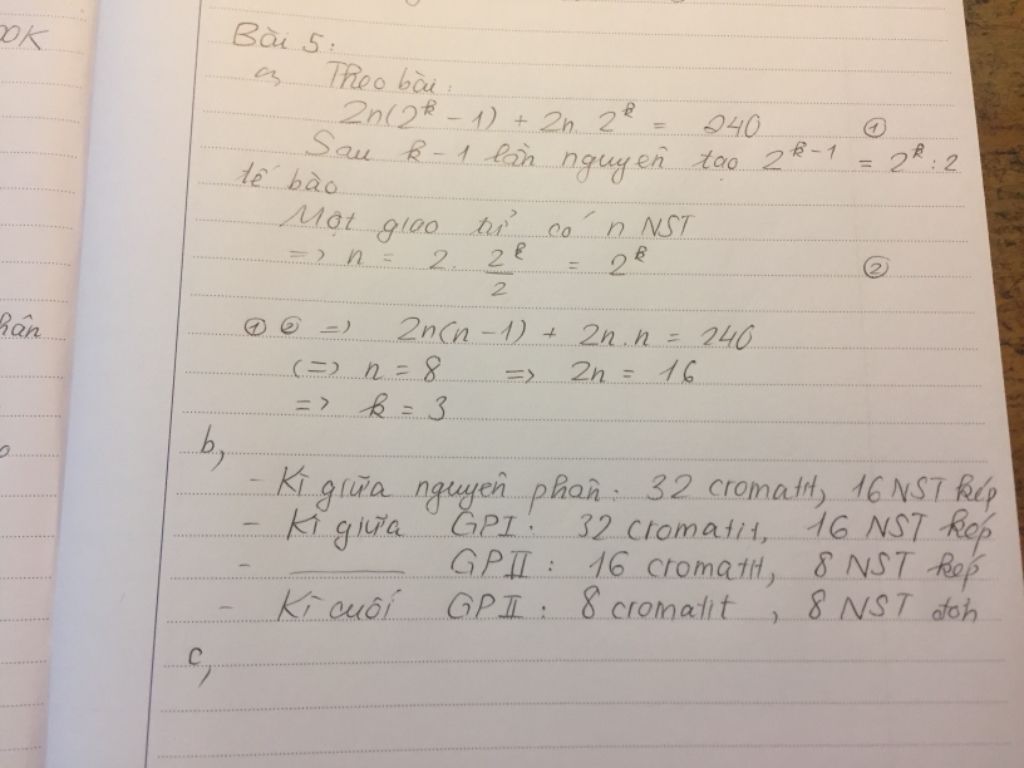 OOK
Bài 5:
a, Theo bài:
2n(2^k - 1) + 2n. 2^k = 240 ①
Sau k-1 lần nguyên tạo 2^{k-1} = 2^k : 2
tế bào
Một giao tử có n NST
=> n = 2. 2^k/2 = 2^k ②
hân
① ② => 2n(n-1) + 2n.n = 240
(=> n = 8 => 2n = 16
=> k = 3
b,
- Kì giữa nguyên phân: 32 cromatit, 16 NST kép
- Kì giữa GPI: 32 cromatit, 16 NST kép
- ——— GPII: 16 cromatit, 8 NST kép
- Kì cuối GPII: 8 cromatit, 8 NST đơn
c,